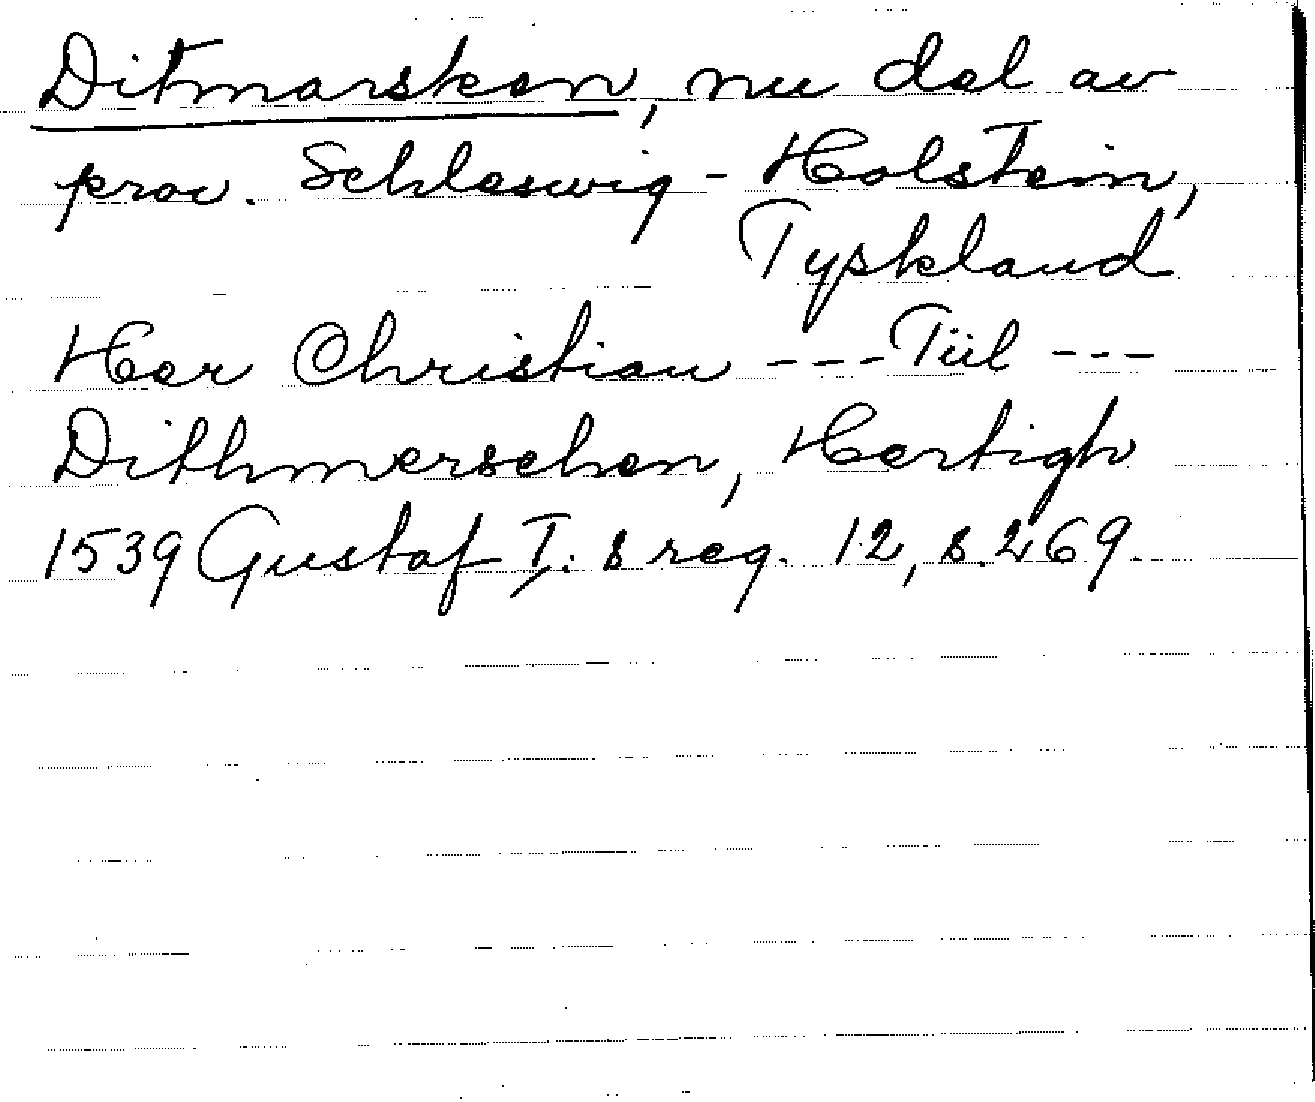 Ditmarsken, nu del av
prov. Schleswig-Holstein,
Tyskland
Her Christian --- Tiil ---
Dithmerschen, Hertigh
1539 Gustaf I:s reg. 12, s. 269.